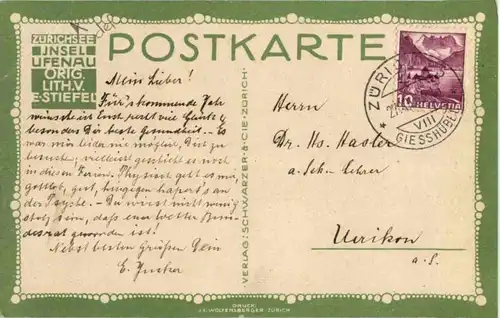 ZÜRICHSEE
INSEL
UFENAU
ORIG.
LITH.V.
E.STIEFEL
POSTKARTE
Mein Lieber!
Für's kommende Jahr
wünscht ich Euch recht viel Glück &
besonders Dir beste Gesundheit. – Es
war mir leider nie möglich, Dich zu
besuche, vielleicht geschieht es noch
in diesen Ferien. Physisch geht es mir,
gottlob, gut, hingegen hapert's an
der Psyche. – Du wirst nicht wenig
stolz sein, dass euer Vetter Bun-
desrat geworden ist!
Nebst besten Grüssen Dein
E.
VERLAG: SCHWARZER & CIE · ZÜRICH
Herrn
Dr. Hs. Hasler
a. Sek. Lehrer
Uerikon
a. S.
10 HELVETIA
ZÜRI
VIII
GIESSHÜBEL
DRUCK:
J.E. WOLFENSBERGER ZÜRICH